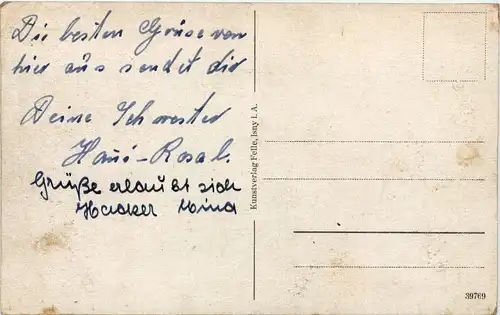 Die besten Grüse von
hier aus sendet dir
Deine Schwester
Hani-Rosal.
Grüße erlaubt sich
Hacker Mina
Kunstverlag Felle, Isny i. A.
39769